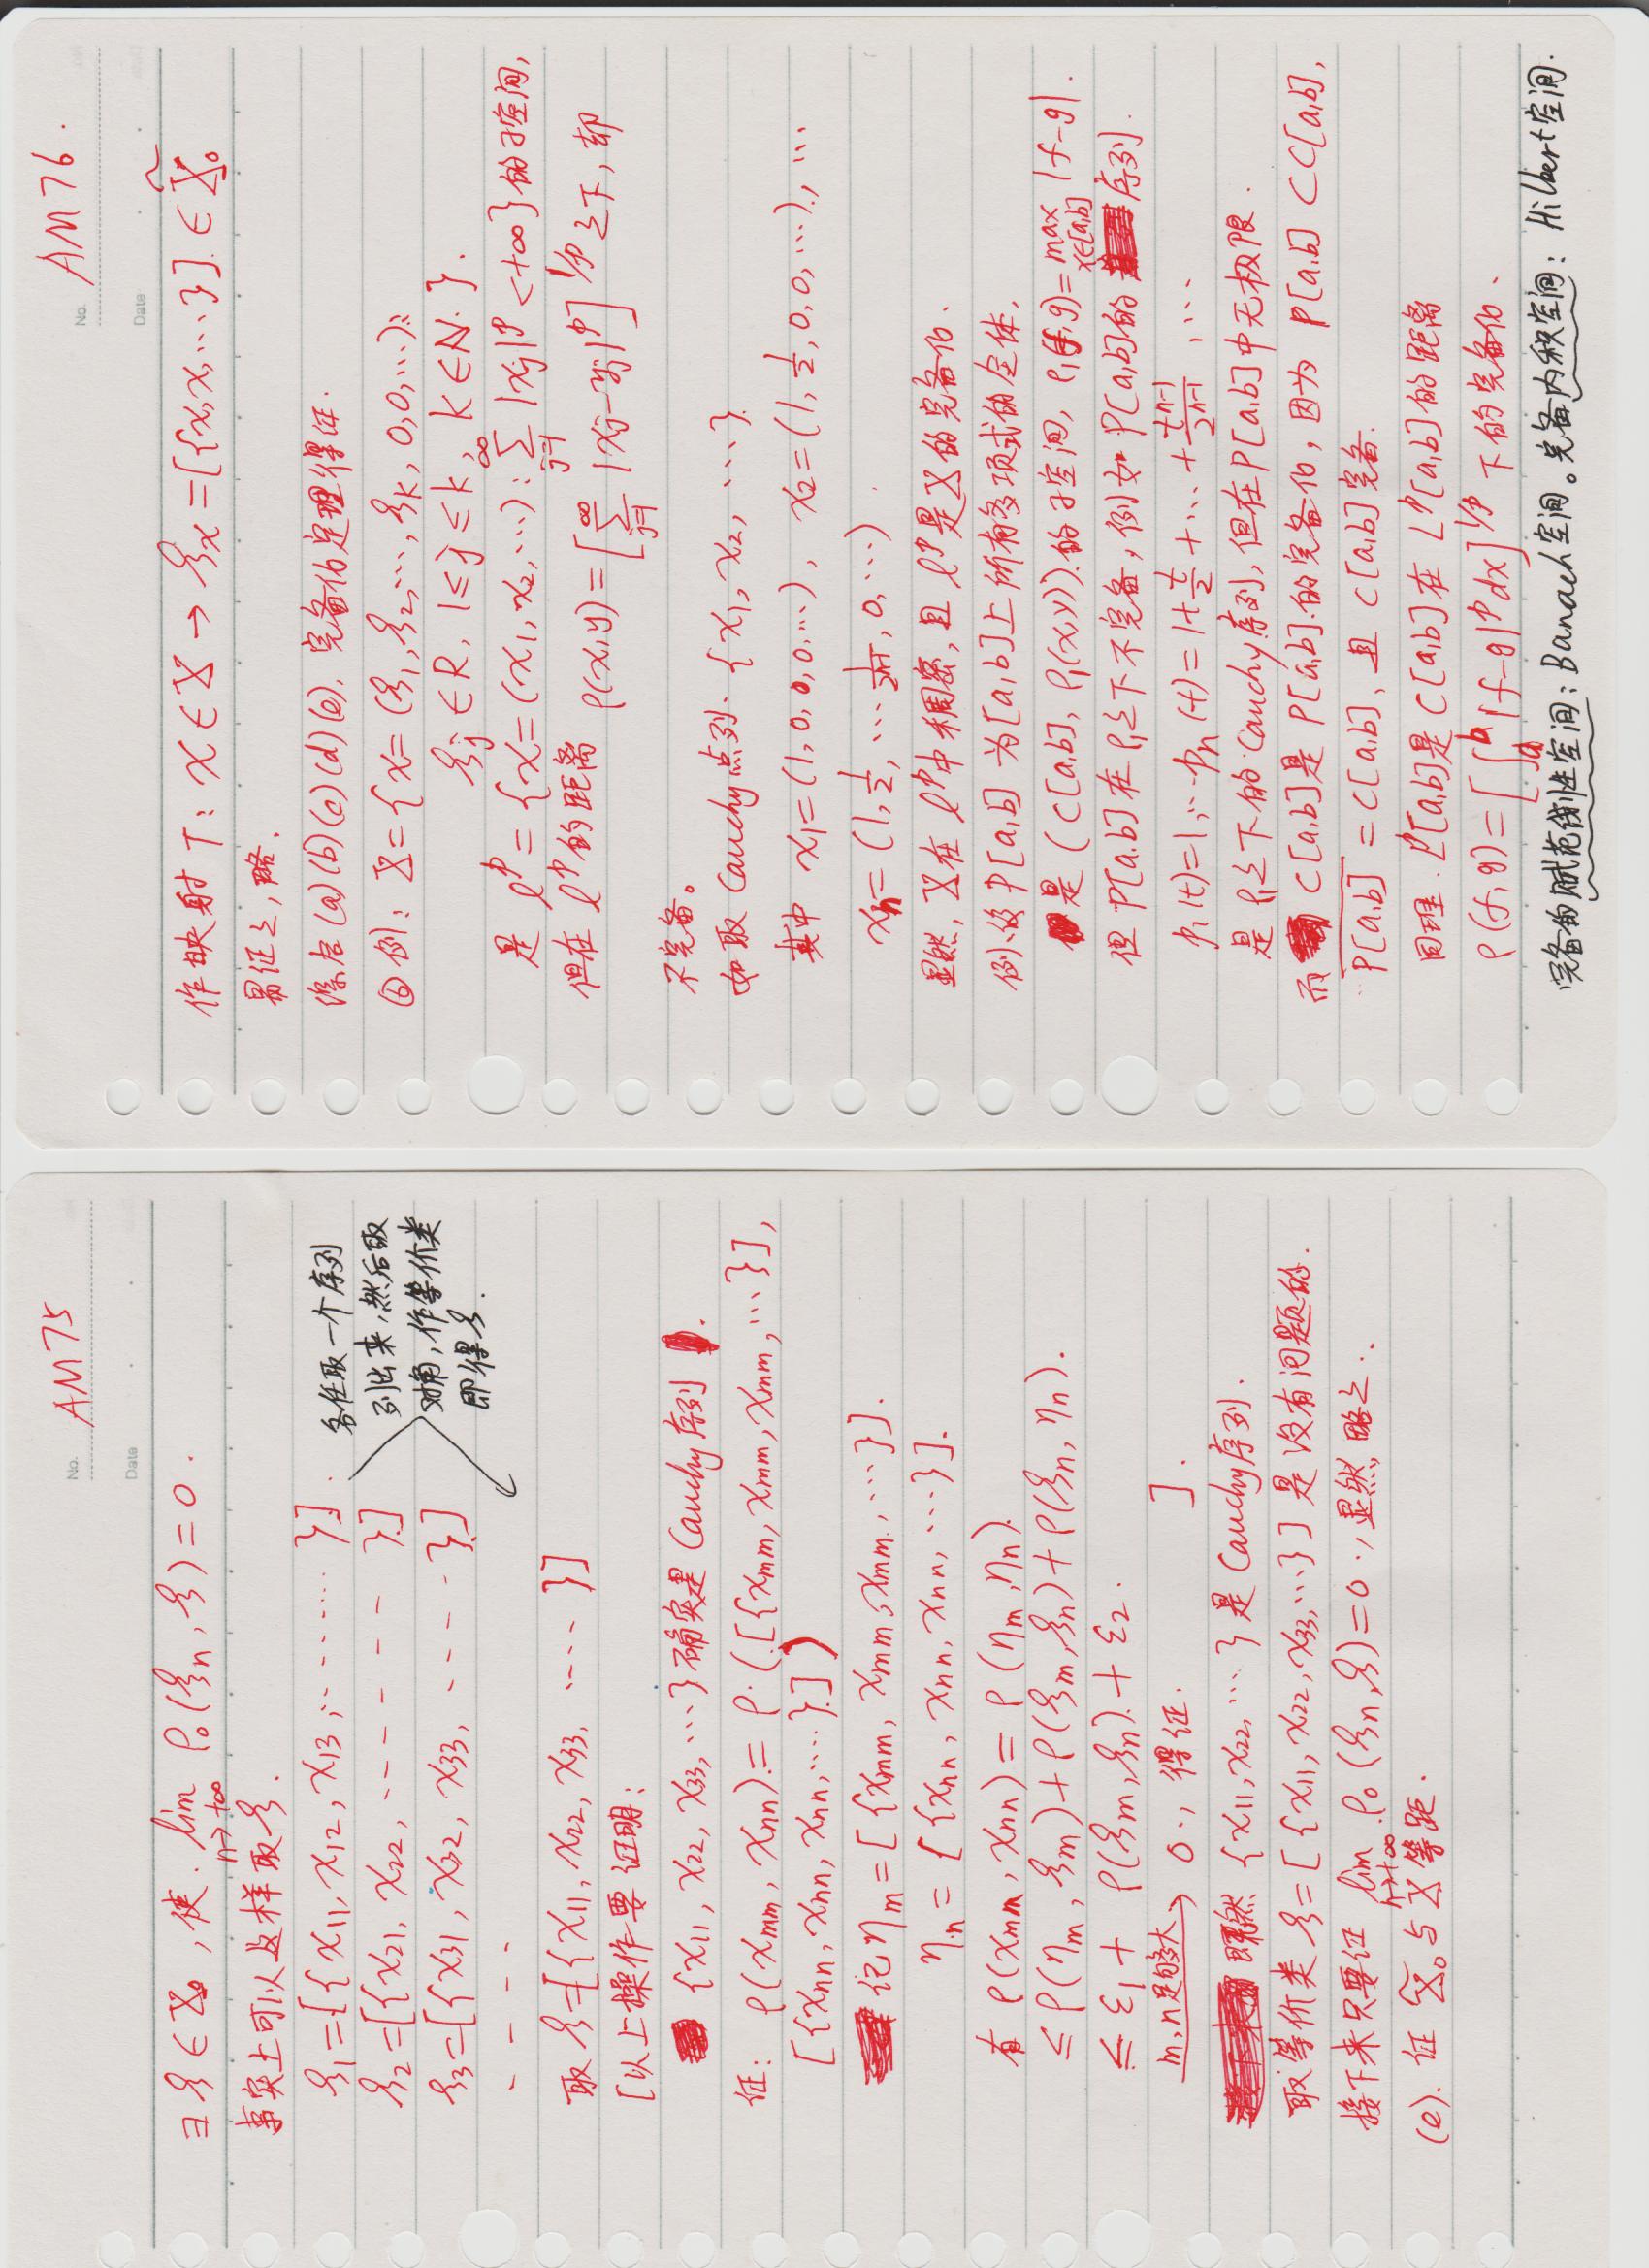 No. AM75
Date
∃ξ∈X₀, 使 lim_{n→+∞} ρ₀(ξn, ξ)=0.
事实上可以这样取ξ.
ξ₁=[{x11, x12, x13, ········}].
ξ₂=[{x21, x22, ------- }]
ξ₃=[{x31, x32, x33, ----- }]
- - - -
各任取一个序列
列出来,然后取
对角,作等价类
即得ξ.
取ξ=[{x11, x22, x33, ····· }]
[以上操作要证明:
{x11, x22, x33, ···}确实是Cauchy序列.
证: ρ(xmm, xnn)=ρ([{xmm, xmm, xmm, ···}],
[{xnn, xnn, xnn, ····}])
记ηm=[{xmm, xmm, xmm, ···}].
ηn=[{xnn, xnn, xnn, ···}].
有 ρ(xmm, xnn)=ρ(ηm, ηn).
≤ρ(ηm, ξm)+ρ(ξm, ξn)+ρ(ξn, ηn).
≤ε₁+ ρ(ξm, ξn)+ε₂.
m,n足够大→ 0, 得证. ].
既然{x11, x22, ···}是Cauchy序列.
取等价类ξ=[{x11, x22, x33, ···}]是没有问题的.
接下来只要证 lim_{n→+∞} ρ₀(ξn, ξ)=0, 显然, 略之.
(e). 证 X̃₀与X等距.
No. AM76.
Date
作映射 T: x∈X→ξx=[{x, x, ···}]∈X̃₀
易证之, 略.
综合(a)(b)(c)(d)(e), 完备化定理得证.
⑥例: X={x=(ξ₁, ξ₂, ···, ξk, 0, 0, ···):
ξj∈R, 1≤j≤k, k∈N.}.
是 ℓᵖ={x=(x₁, x₂, ···): ∑_{j=1}^{∞} |xj|ᵖ<+∞}的子空间,
但在ℓᵖ的距离 ρ(x,y)=[∑_{j=1}^{∞} |xj-yj|ᵖ]^{1/p}之下, 却
不完备。
如取Cauchy点列 {x₁, x₂, ···}
其中 x₁=(1, 0, 0, 0, ···), x₂=(1, 1/2, 0, 0, ···), ···
xn=(1, 1/2, ··· 1/2^{n-1}, 0, ···)
显然, X在ℓᵖ中稠密, 且ℓᵖ是X的完备化.
例、设P[a,b]为[a,b]上所有多项式的全体,
是(C[a,b], ρ₁(x,y))的子空间, ρ₁(f,g)=max_{x∈[a,b]} |f-g|.
但P[a,b]在ρ₁之下不完备, 例如P[a,b]的序列.
p₁(t)=1, ··· pn(t)=1+t/2+···+t^{n-1}/2^{n-1}, ···
是ρ₁之下的Cauchy序列, 但在P[a,b]中无极限.
而C[a,b]是P[a,b]的完备化, 因为P[a,b]⊂C[a,b],
\overline{P[a,b]}=C[a,b], 且C[a,b]完备.
同理. Lᵖ[a,b]是C[a,b]在Lᵖ[a,b]的距离
ρ(f,g)=[∫_a^b |f-g|ᵖdx]^{1/p} 下的完备化.
完备的赋范线性空间: Banach空间。完备内积空间: Hilbert空间.